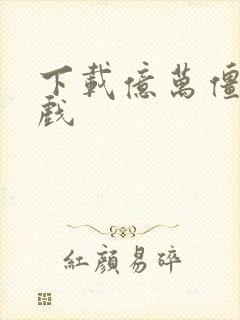 下載億萬僵
戲
紅顏易碎